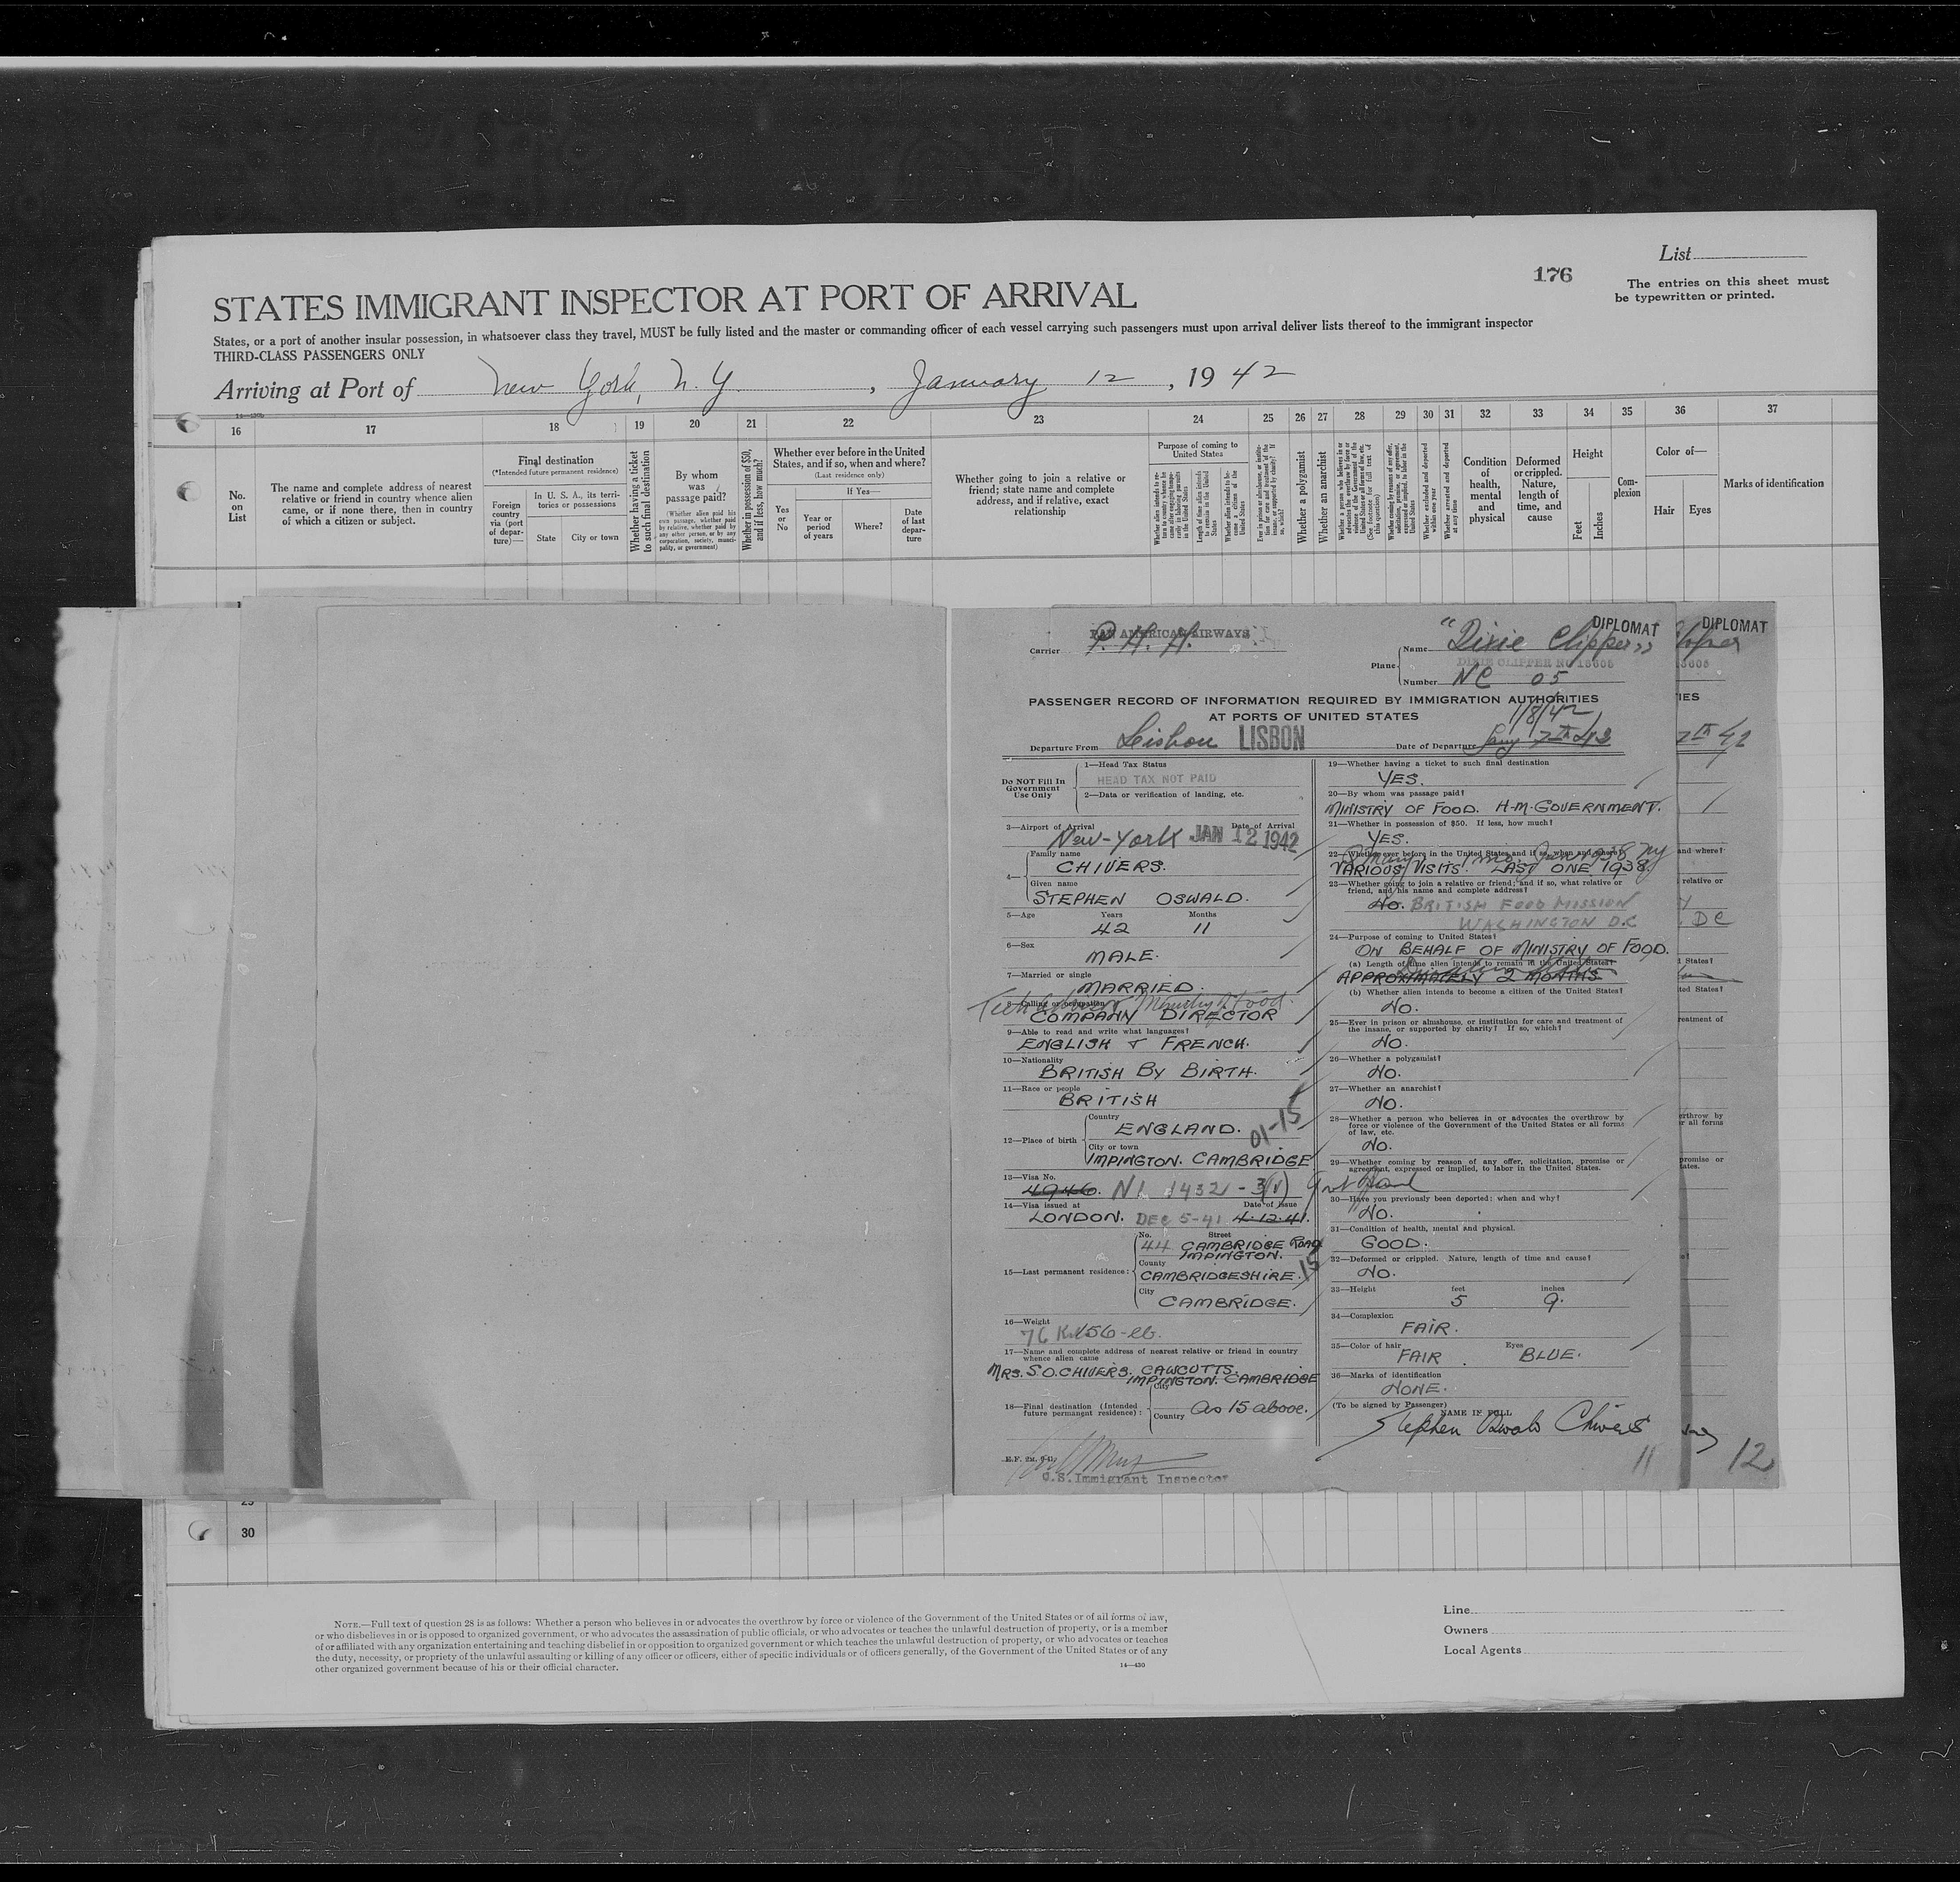 List
176
The entries on this sheet must
be typewritten or printed.
STATES IMMIGRANT INSPECTOR AT PORT OF ARRIVAL
States, or a port of another insular possession, in whatsoever class they travel, MUST be fully listed and the master or commanding officer of each vessel carrying such passengers must upon arrival deliver lists thereof to the immigrant inspector
THIRD-CLASS PASSENGERS ONLY
Arriving at Port of New York, N.Y., January 12, 1942
16 17 18 19 20 21 22 23 24 25 26 27 28 29 30 31 32 33 34 35 36 37
No.
on
List
The name and complete address of nearest
relative or friend in country whence alien
came, or if none there, then in country
of which a citizen or subject.
Final destination
(*Intended future permanent residence)
Foreign
country
via (port
of depar-
ture)—
In U. S. A., its terri-
tories or possessions
State
City or town
Whether having a ticket
to such final destination
By whom
was
passage paid?
(Whether alien paid his
own passage, whether paid
by relative, whether paid by
any other person, or by any
corporation, society, munici-
pality, or government)
Whether in possession of $50,
and if less, how much?
Whether ever before in the United
States, and if so, when and where?
(Last residence only)
Yes
or
No
If Yes—
Year or
period
of years
Where?
Date
of last
depar-
ture
Whether going to join a relative or
friend; state name and complete
address, and if relative, exact
relationship
Purpose of coming to
United States
Length of time alien intends
to remain in the United
States
Whether alien intends to be-
come a citizen of the
United States
Whether a polygamist
Whether an anarchist
Whether excluded and deported
within one year
Whether arrested and deported
at any time
Condition
of
health,
mental
and
physical
Deformed
or crippled.
Nature,
length of
time, and
cause
Height
Feet
Inches
Com-
plexion
Color of—
Hair
Eyes
Marks of identification
PAN AMERICAN AIRWAYS
Carrier
Plane
Name "Dixie Clipper"
DIPLOMAT
DIXIE CLIPPER NC 18605
Number NC 05
PASSENGER RECORD OF INFORMATION REQUIRED BY IMMIGRATION AUTHORITIES
AT PORTS OF UNITED STATES
1/8/42
Departure From Lisbon LISBON
Date of Departure
Do NOT Fill In
Government
Use Only
1—Head Tax Status
HEAD TAX NOT PAID
2—Data or verification of landing, etc.
3—Airport of Arrival Date of Arrival
New-York JAN 12 1942
4— Family name
CHIVERS.
Given name
STEPHEN OSWALD.
5—Age Years Months
42 11
6—Sex
MALE.
7—Married or single
MARRIED.
8—Calling or occupation
Ministry of Food.
COMPANY DIRECTOR
9—Able to read and write what languages?
ENGLISH & FRENCH.
10—Nationality
BRITISH BY BIRTH.
11—Race or people
BRITISH
12—Place of birth
Country
ENGLAND. 01-15
City or town
IMPINGTON. CAMBRIDGE
13—Visa No.
4946. NI 1432 - 3(1)
14—Visa issued at Date of Issue
LONDON. DEC 5-41 4.12.41.
15—Last permanent residence:
No. Street
44 CAMBRIDGE ROAD
IMPINGTON.
County
CAMBRIDGESHIRE. 15
City
CAMBRIDGE.
16—Weight
76 K 156-lb.
17—Name and complete address of nearest relative or friend in country
whence alien came
MRS. S.O. CHIVERS. CAWCUTTS.
IMPINGTON. CAMBRIDGE
18—Final destination (Intended
future permanent residence):
City
Country
As 15 above.
U.S. Immigrant Inspector
19—Whether having a ticket to such final destination
YES.
20—By whom was passage paid?
MINISTRY OF FOOD. H.M. GOVERNMENT.
21—Whether in possession of $50. If less, how much?
YES.
22—Whether ever before in the United States and if so, when and where?
VARIOUS VISITS. LAST ONE 1938.
23—Whether going to join a relative or friend; and if so, what relative or
friend, and his name and complete address?
No. BRITISH FOOD MISSION
WASHINGTON D.C
24—Purpose of coming to United States?
ON BEHALF OF MINISTRY OF FOOD.
(a) Length of time alien intends to remain in the United States?
APPROXIMATELY 2 MONTHS
(b) Whether alien intends to become a citizen of the United States?
No.
25—Ever in prison or almshouse, or institution for care and treatment of
the insane, or supported by charity? If so, which?
No.
26—Whether a polygamist?
No.
27—Whether an anarchist?
No.
28—Whether a person who believes in or advocates the overthrow by
force or violence of the Government of the United States or all forms
of law, etc.
No.
29—Whether coming by reason of any offer, solicitation, promise or
agreement, expressed or implied, to labor in the United States.
30—Have you previously been deported; when and why?
No.
31—Condition of health, mental and physical.
GOOD.
32—Deformed or crippled. Nature, length of time and cause?
No.
33—Height feet inches
5 9.
34—Complexion
FAIR.
35—Color of hair Eyes
FAIR BLUE.
36—Marks of identification
NONE.
(To be signed by Passenger)
NAME IN FULL
Stephen Oswald Chivers
11
DIPLOMAT
12
30
NOTE.—Full text of question 28 is as follows: Whether a person who believes in or advocates the overthrow by force or violence of the Government of the United States or of all forms of law,
or who disbelieves in or is opposed to organized government, or who advocates the assassination of public officials, or who advocates or teaches the unlawful destruction of property, or is a member
of or affiliated with any organization entertaining and teaching disbelief in or opposition to organized government or which teaches the unlawful destruction of property, or who advocates or teaches
the duty, necessity, or propriety of the unlawful assaulting or killing of any officer or officers, either of specific individuals or of officers generally, of the Government of the United States or of any
other organized government because of his or their official character.
14—430
Line
Owners
Local Agents